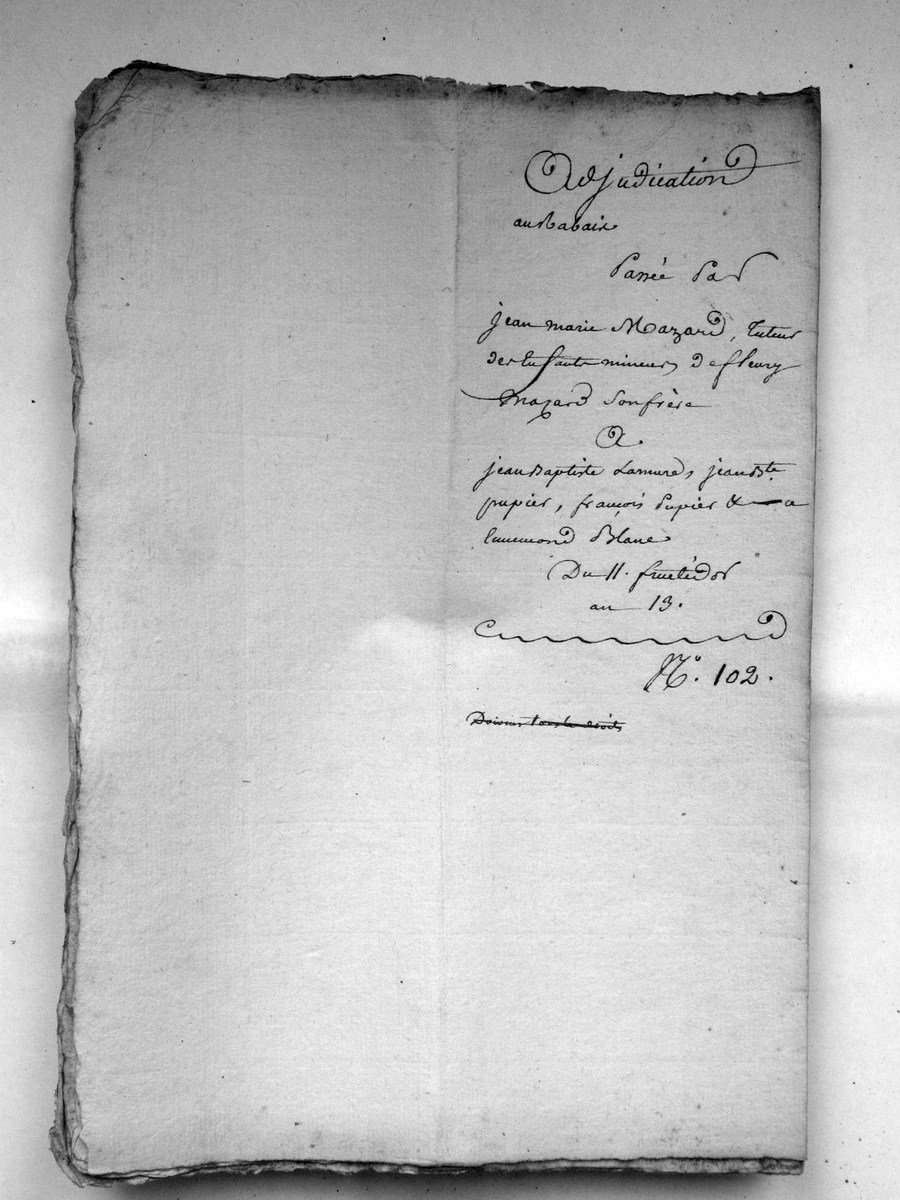 Adjudication
au Rabaix
Passée Par
jean marie Mazard, tuteur
des Enfants mineurs de fleury
mazard Son frère
A
jean Baptiste Lamure, jean Bte.
pupier, françois Pupier & a
Ennemond Blanc
Du 11. fructidor
an 13.
N°. 102.
Doivent tous les droits